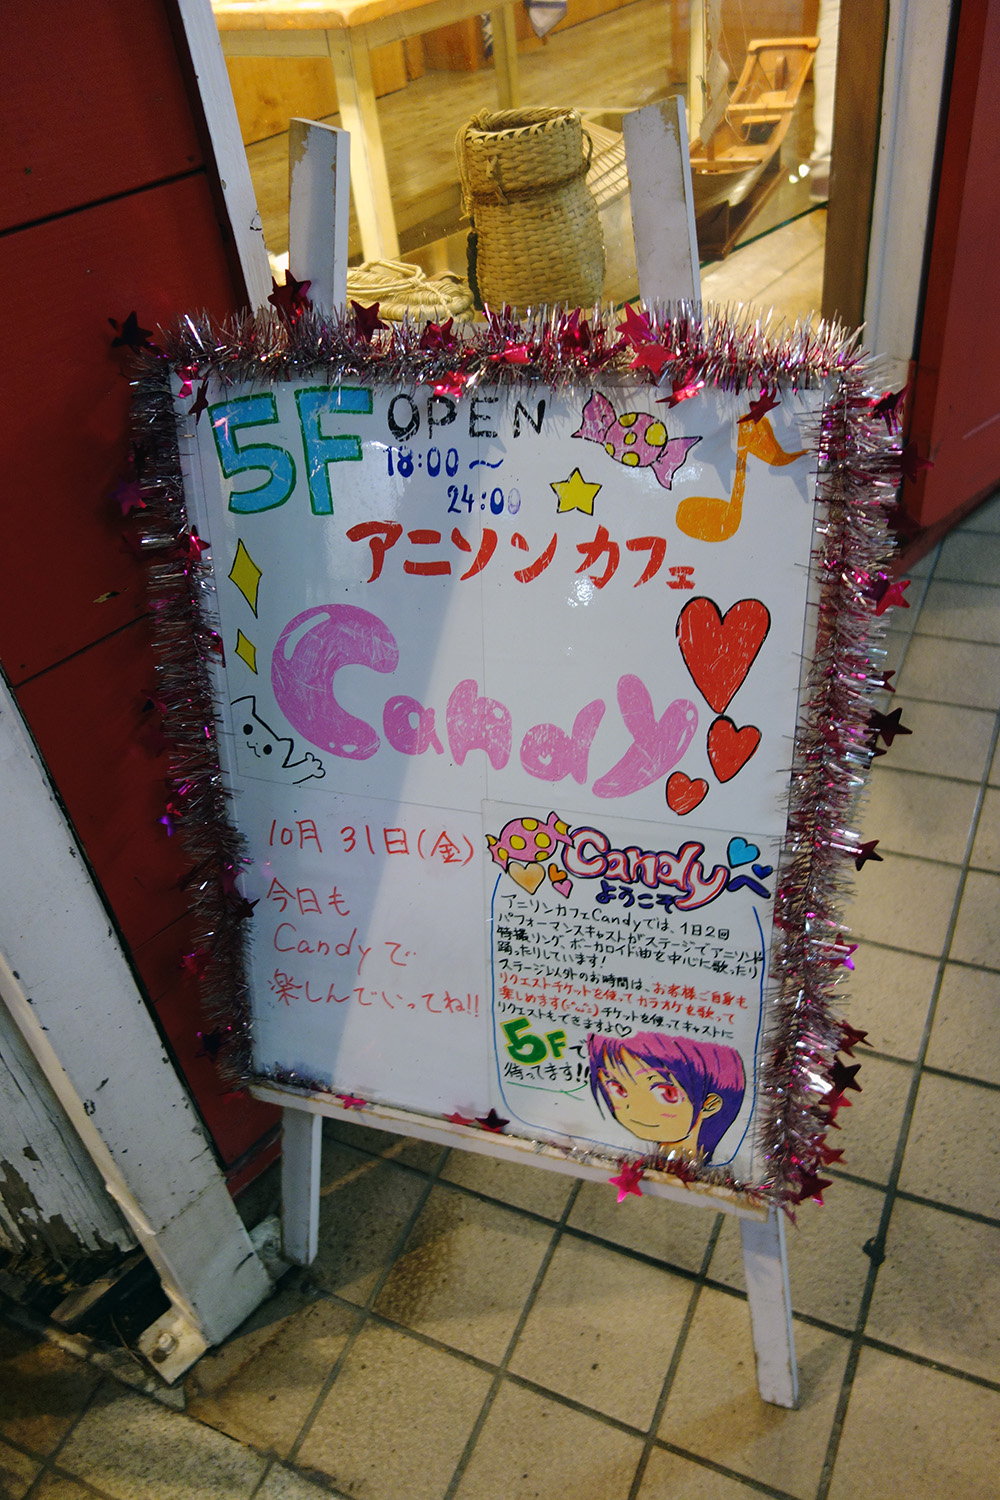 5F OPEN
18:00〜
24:00
アニソンカフェ
Candy
10月 31日(金)
今日も
Candyで
楽しんでいってね!!
Candyへ
ようこそ
アニソンカフェCandyでは、1日2回
パフォーマンスキャストがステージでアニソンや
特撮ソング、ボーカロイド曲を中心に歌ったり
踊ったりしています!
ステージ以外のお時間は、お客様ご自身も
リクエストチケットを使ってカラオケを歌って
楽しめます(*^ω^*)チケットを使ってキャストに
リクエストもできますよ♡
5Fで
待ってます!!